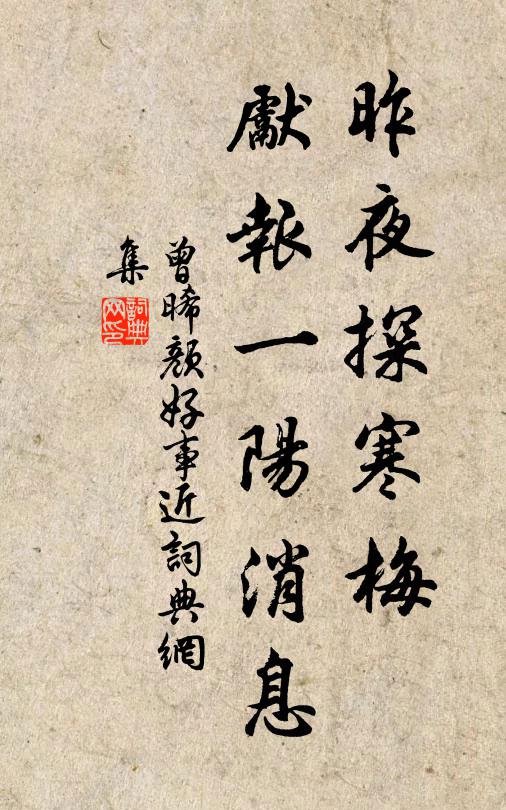 昨夜探寒梅
獻報一陽消息
曾晞顏好事近詞典網
集
詞典网印